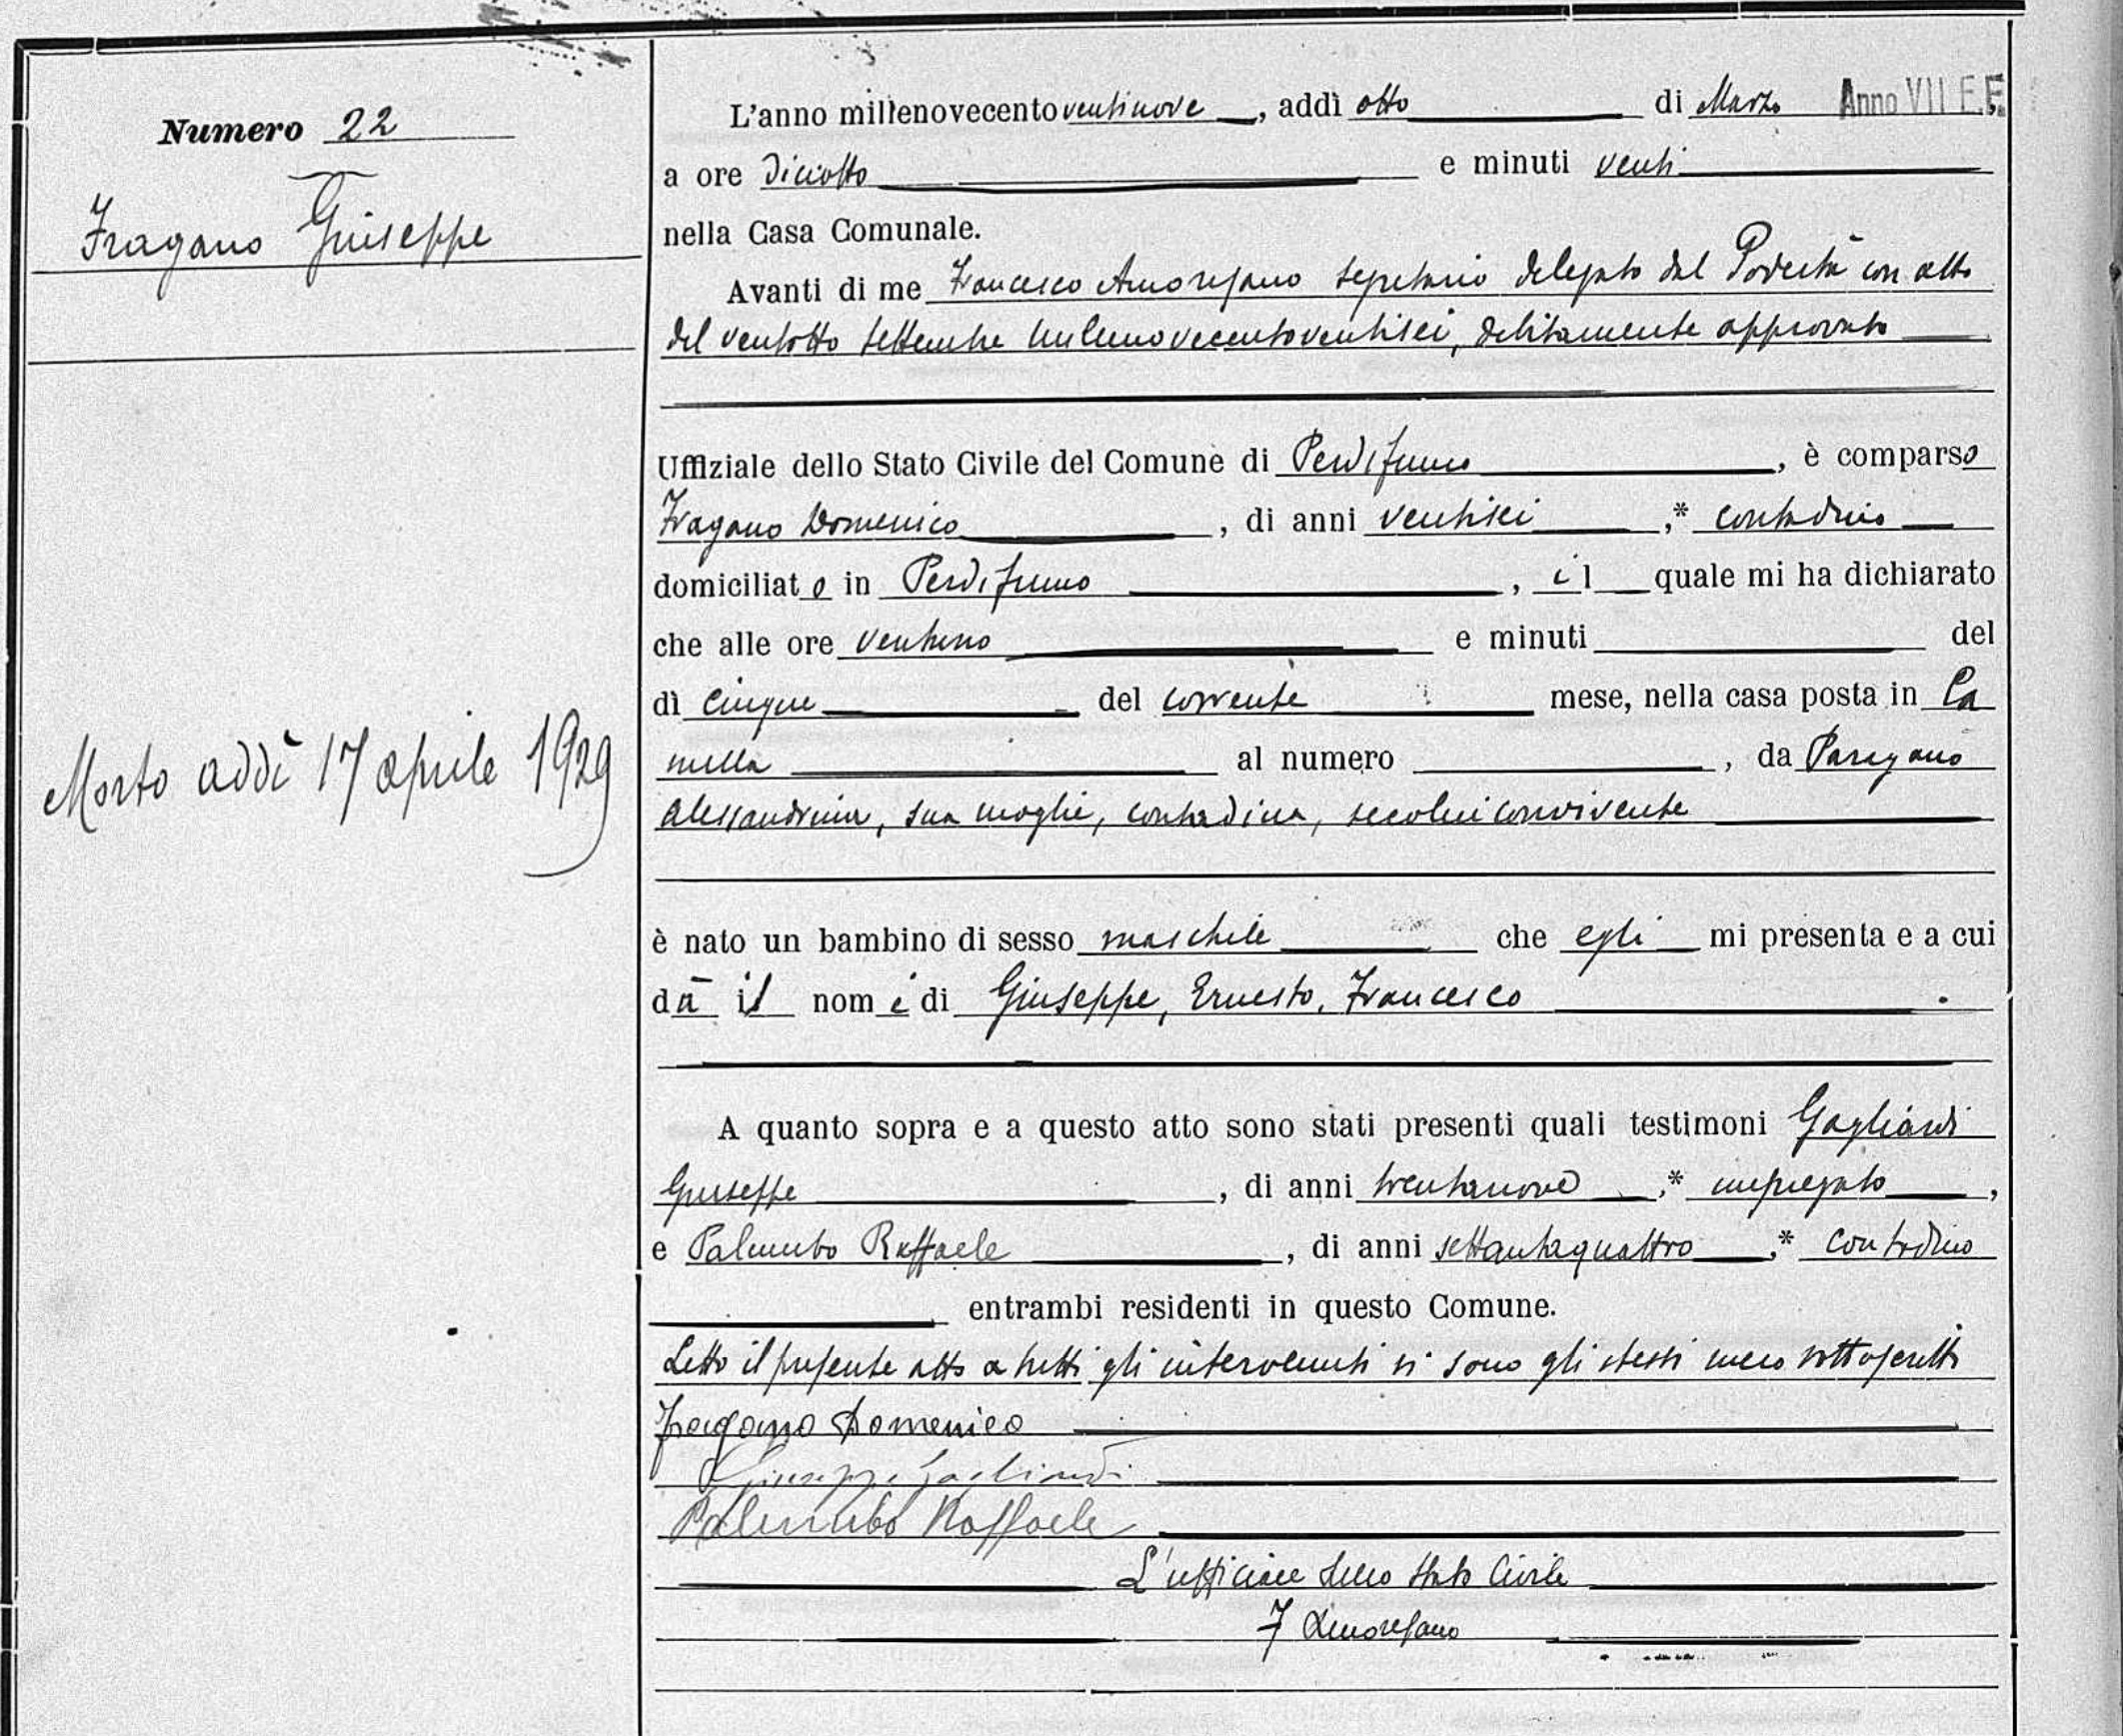 Numero 22
Fragano Giuseppe
Morto addì 17 aprile 1929
L'anno millenovecento ventinove, addì otto di Marzo Anno VII E.F.
a ore diciotto e minuti venti
nella Casa Comunale.
Avanti di me Francesco Amoresano segretario delegato dal Podestà con atto
del ventotto settembre millenovecentoventisei, debitamente approvato
Uffiziale dello Stato Civile del Comune di Perdifumo, è comparso
Fragano Domenico, di anni ventisei,* contadino
domiciliato in Perdifumo, il quale mi ha dichiarato
che alle ore ventuno e minuti del
dì cinque del corrente mese, nella casa posta in Ca
mella al numero, da Paragano
Alessandrina, sua moglie, contadina, secolui convivente
è nato un bambino di sesso maschile che egli mi presenta e a cui
dà il nom i di Giuseppe, Ernesto, Francesco.
A quanto sopra e a questo atto sono stati presenti quali testimoni Gagliardi
Giuseppe, di anni trentanove,* impiegato,
e Palumbo Raffaele, di anni settantaquattro,* contadino
entrambi residenti in questo Comune.
Letto il presente atto a tutti gli intervenuti si sono gli stessi meco sottoscritti
Fragano Domenico
Giuseppe Gagliardi
Palumbo Raffaele
L'ufficiale dello Stato Civile
F Amoresano